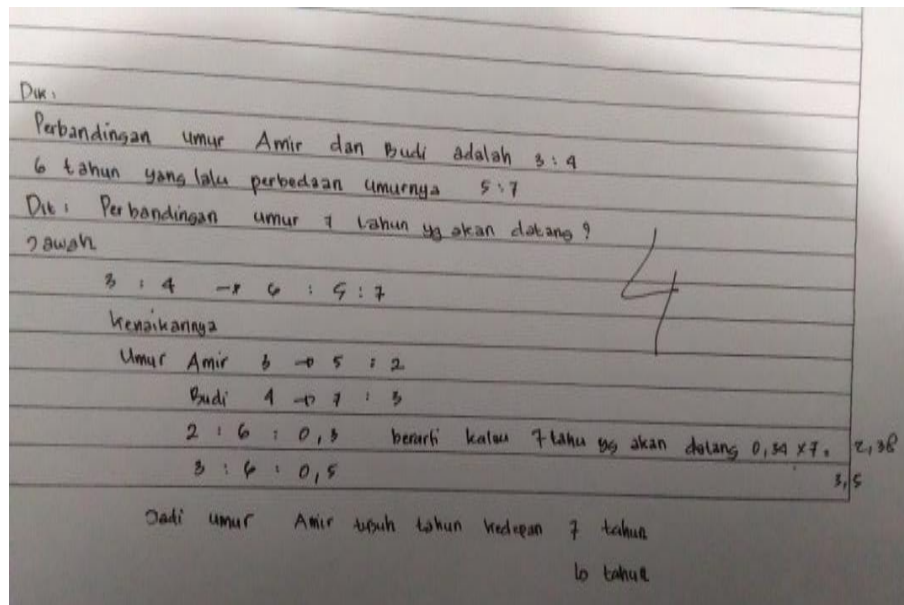 Dik:
Perbandingan umur Amir dan Budi adalah 3 : 4
6 tahun yang lalu perbedaan umurnya 5:7
Dit: Perbandingan umur 7 tahun yg akan datang?
Jawab
4
3 : 4 → 6 : 5 : 7
Kenaikannya
Umur Amir 3 → 5 : 2
Budi 4 → 7 : 3
2 : 6 : 0,3 berarti kalau 7 tahu yg akan datang 0,34 x 7 = 2,38
3 : 6 : 0,5 3,5
Jadi umur Amir tujuh tahun kedepan 7 tahun
10 tahun